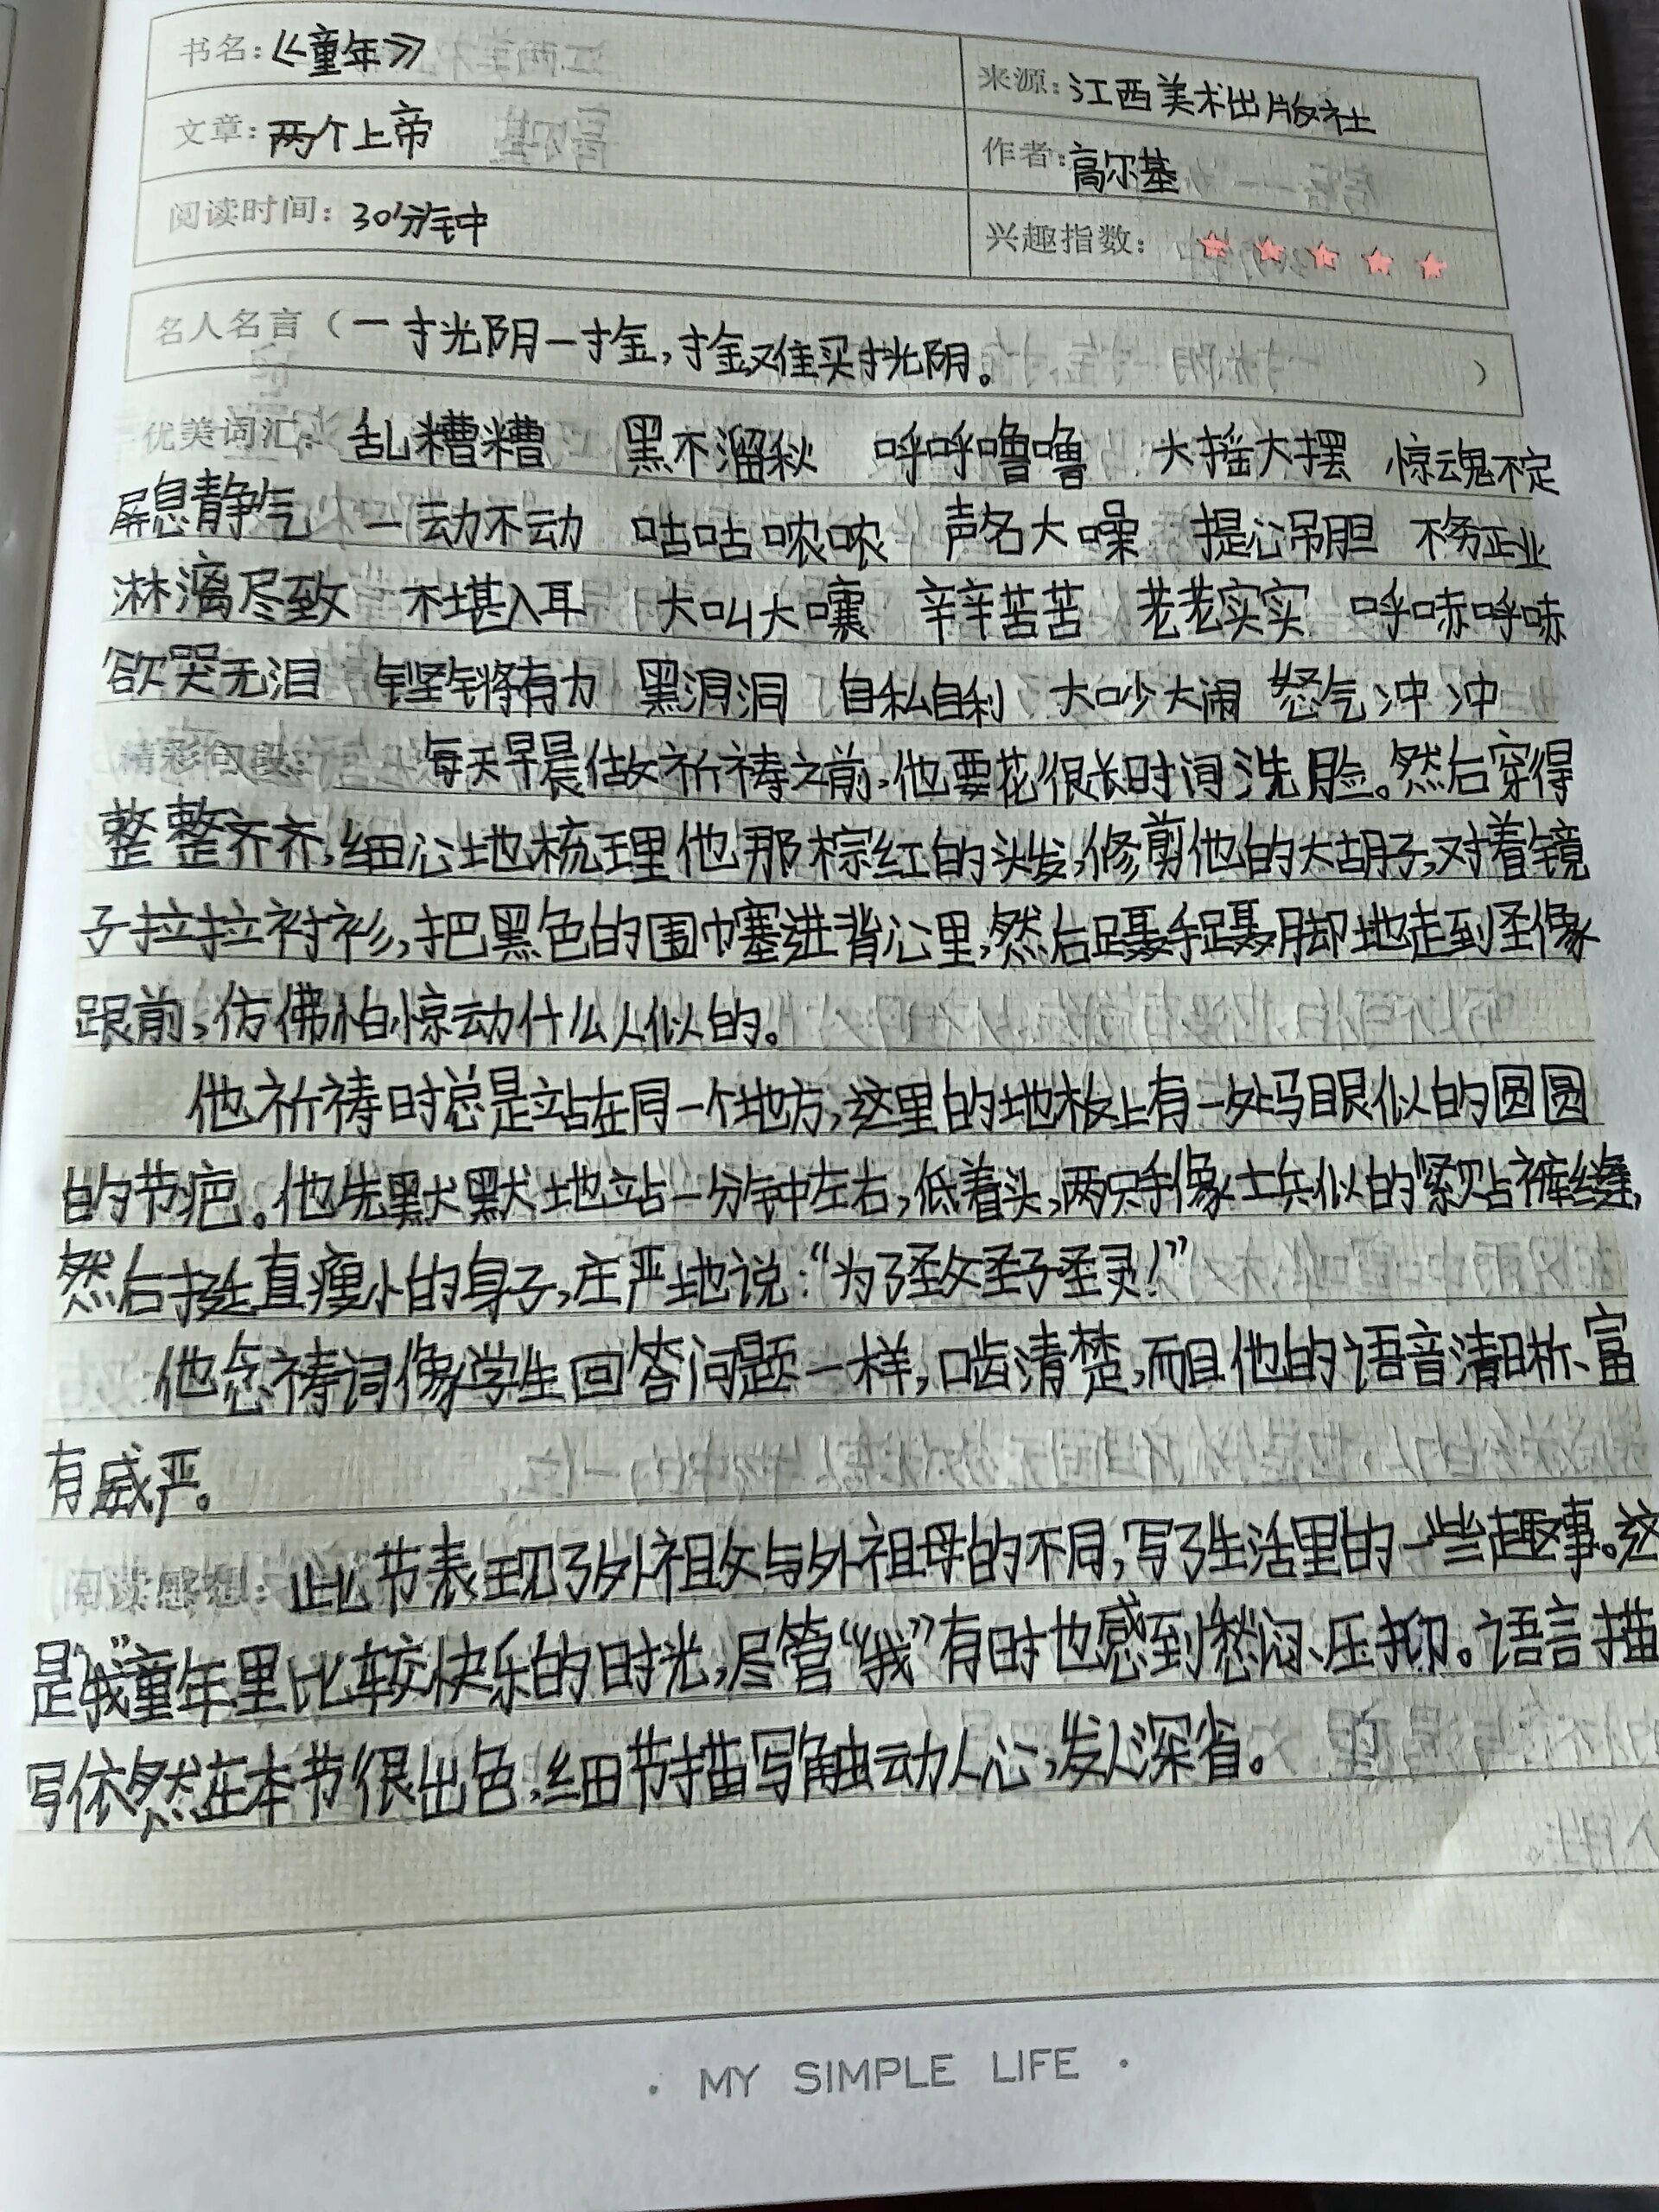 书名：《童年》
来源：江西美术出版社
文章：两个上帝
作者：高尔基
阅读时间：30分钟
兴趣指数：
名人名言（一寸光阴一寸金，寸金难买寸光阴。）
优美词汇：乱糟糟 黑不溜秋 呼呼噜噜 大摇大摆 惊魂不定
屏息静气 一动不动 咕咕哝哝 声名大噪 提心吊胆 不务正业
淋漓尽致 不堪入耳 大叫大嚷 辛辛苦苦 老老实实 呼哧呼哧
欲哭无泪 铿锵有力 黑洞洞 自私自利 大吵大闹 怒气冲冲
精彩句段： 每天早晨做祈祷之前，他要花很长时间洗脸。然后穿得
整整齐齐，细心地梳理他那棕红的头发，修剪他的大胡子，对着镜
子拉拉衬衫，把黑色的围巾塞进背心里，然后蹑手蹑脚地走到圣像
跟前，仿佛怕惊动什么人似的。
他祈祷时总是站在同一个地方，这里的地板上有一处马眼似的圆圆
的节疤。他先默默地站一分钟左右，低着头，两只手像士兵似的紧贴裤缝，
然后挺直瘦小的身子，庄严地说：“为了圣父圣子圣灵！”
他念祷词像学生回答问题一样，口齿清楚，而且他的语音清晰、富
有威严。
阅读感想：此节表现了外祖父与外祖母的不同，写了生活里的一些趣事。这
是“我”童年里比较快乐的时光，尽管“我”有时也感到愁闷、压抑。语言描
写依然在本节很出色，细节描写触动人心，发人深省。
· MY SIMPLE LIFE ·